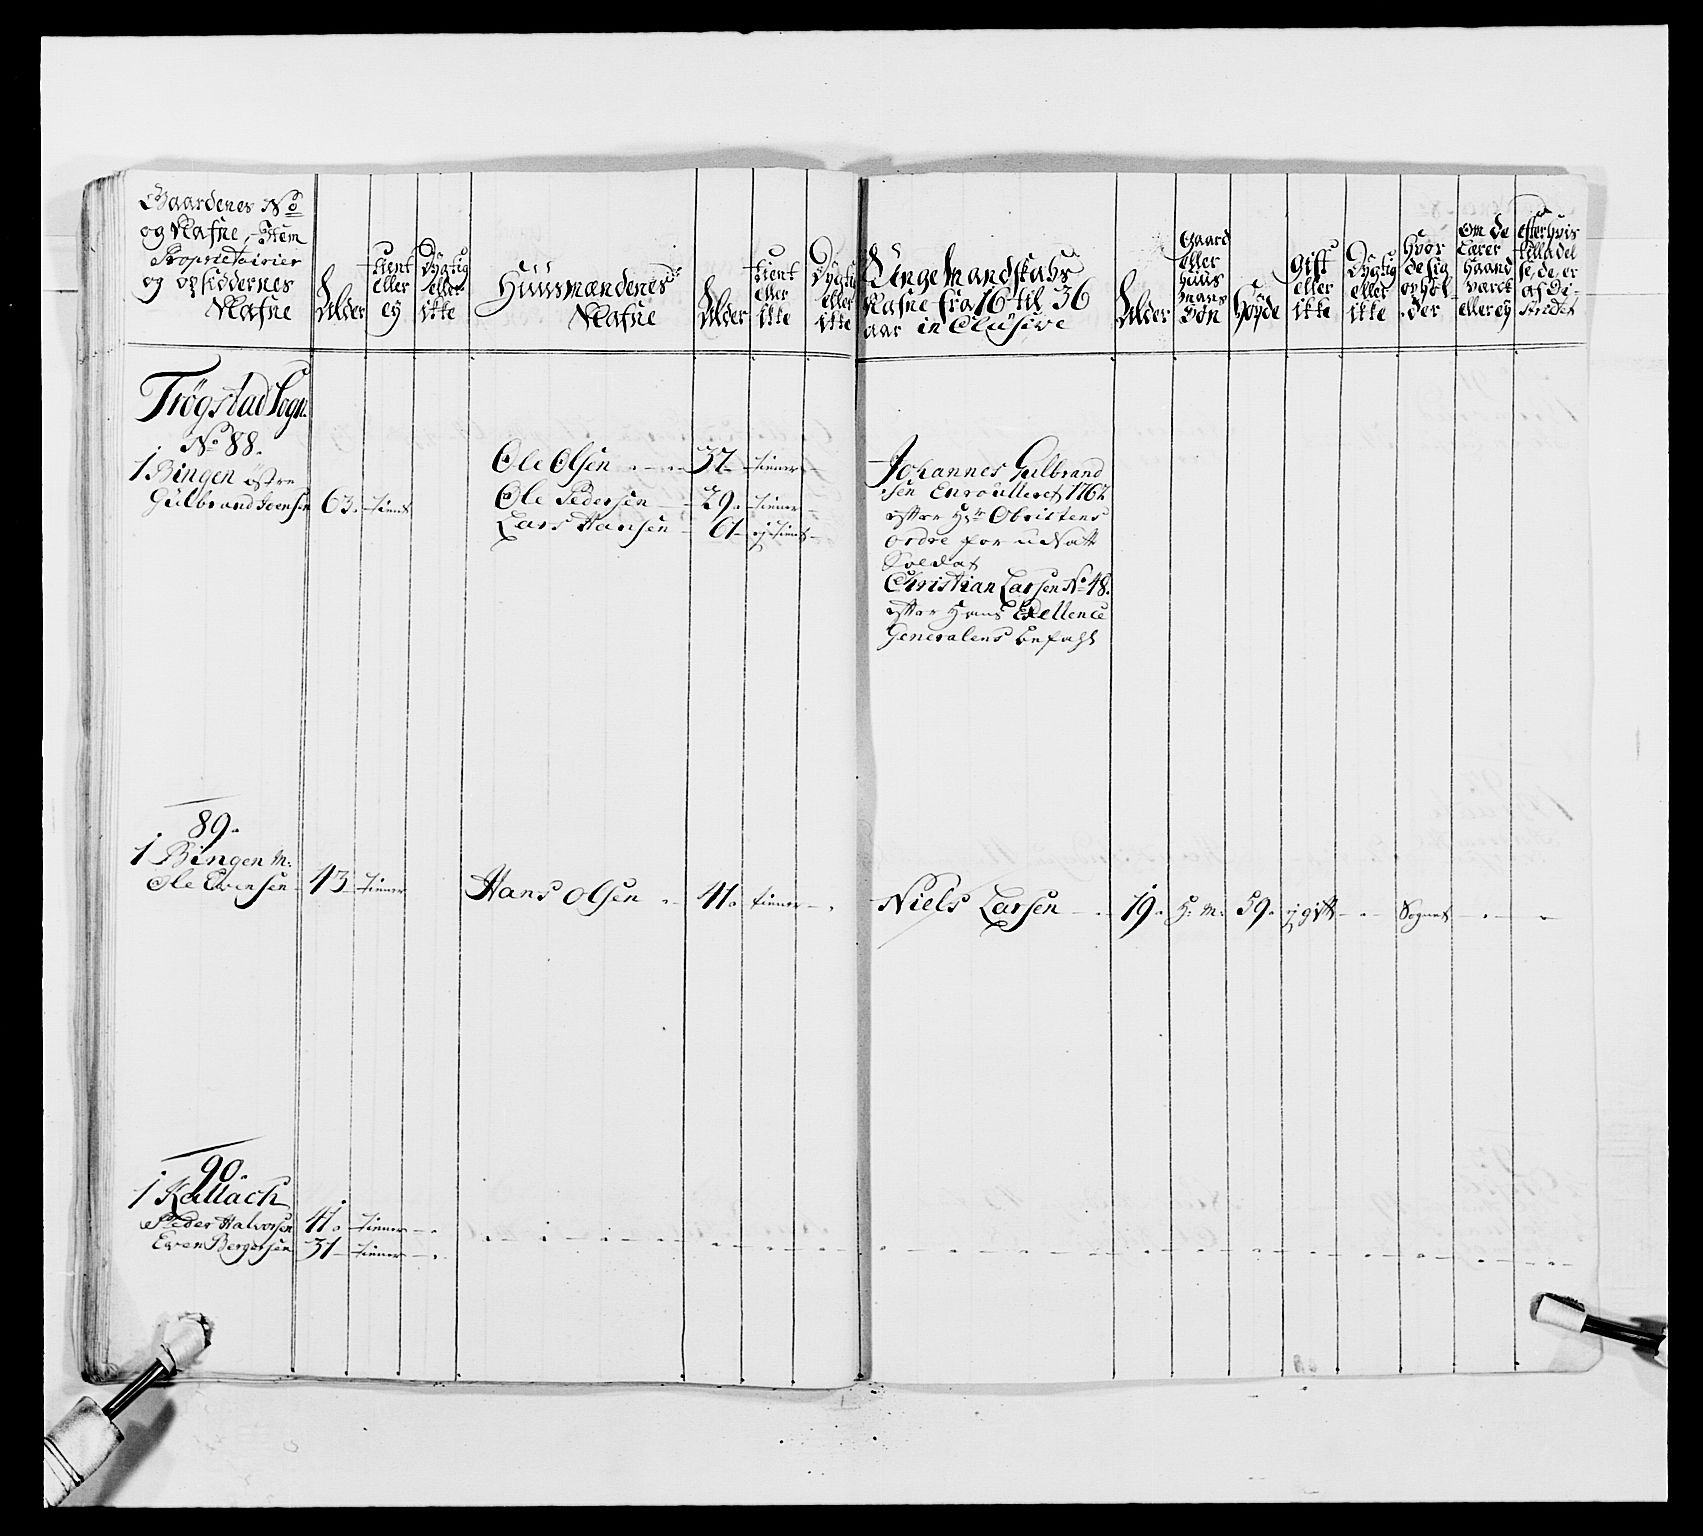 Gaardenes No
og Nafne, Item
Proprietairier
og opsiddernes
Nafne
Alder
tient
eller
ey
Dygtig
eller
ikke
Huusmændenes
Nafne
Alder
tient
eller
ikke
Dygtig
eller
ikke
Unge Mandskabs
Nafne fra 16 til 36
aar inclusive
Alder
Gaard
eller
Huus
Mans
Søn
Høyde
Gift
eller
ikke
Dygtig
eller
ikke
Hvor
de sig
ophol
der
Om de
Lærer
Haand
værck
eller ey
efter hvis
tilladel
se, de er
af Di-
strictet
Trøgstad Sogn
No 88.
1 Bingen østre
Gulbrand Joensen 63. tient
Ole Olsen 37 tiener
Ole Pedersen 29. tiener
Lars Hansen 61 ej tient
Johannes Gulbrand
sen Enroulleret 1762
efter Hr Obristens
ordre for udsatt
Soldat
Christian Larsen No 48.
efter Hans Exellence
Generalens befahl
89.
1 Bingen M:
Ole Evensen 43 tiener
Hans Olsen 41. tiener
Niels Larsen 19. H: M: 59. ej gift Sognet
90.
1 Kallach
Peder Halvorsen 41. tiener
Even Bergersen 31 tiener